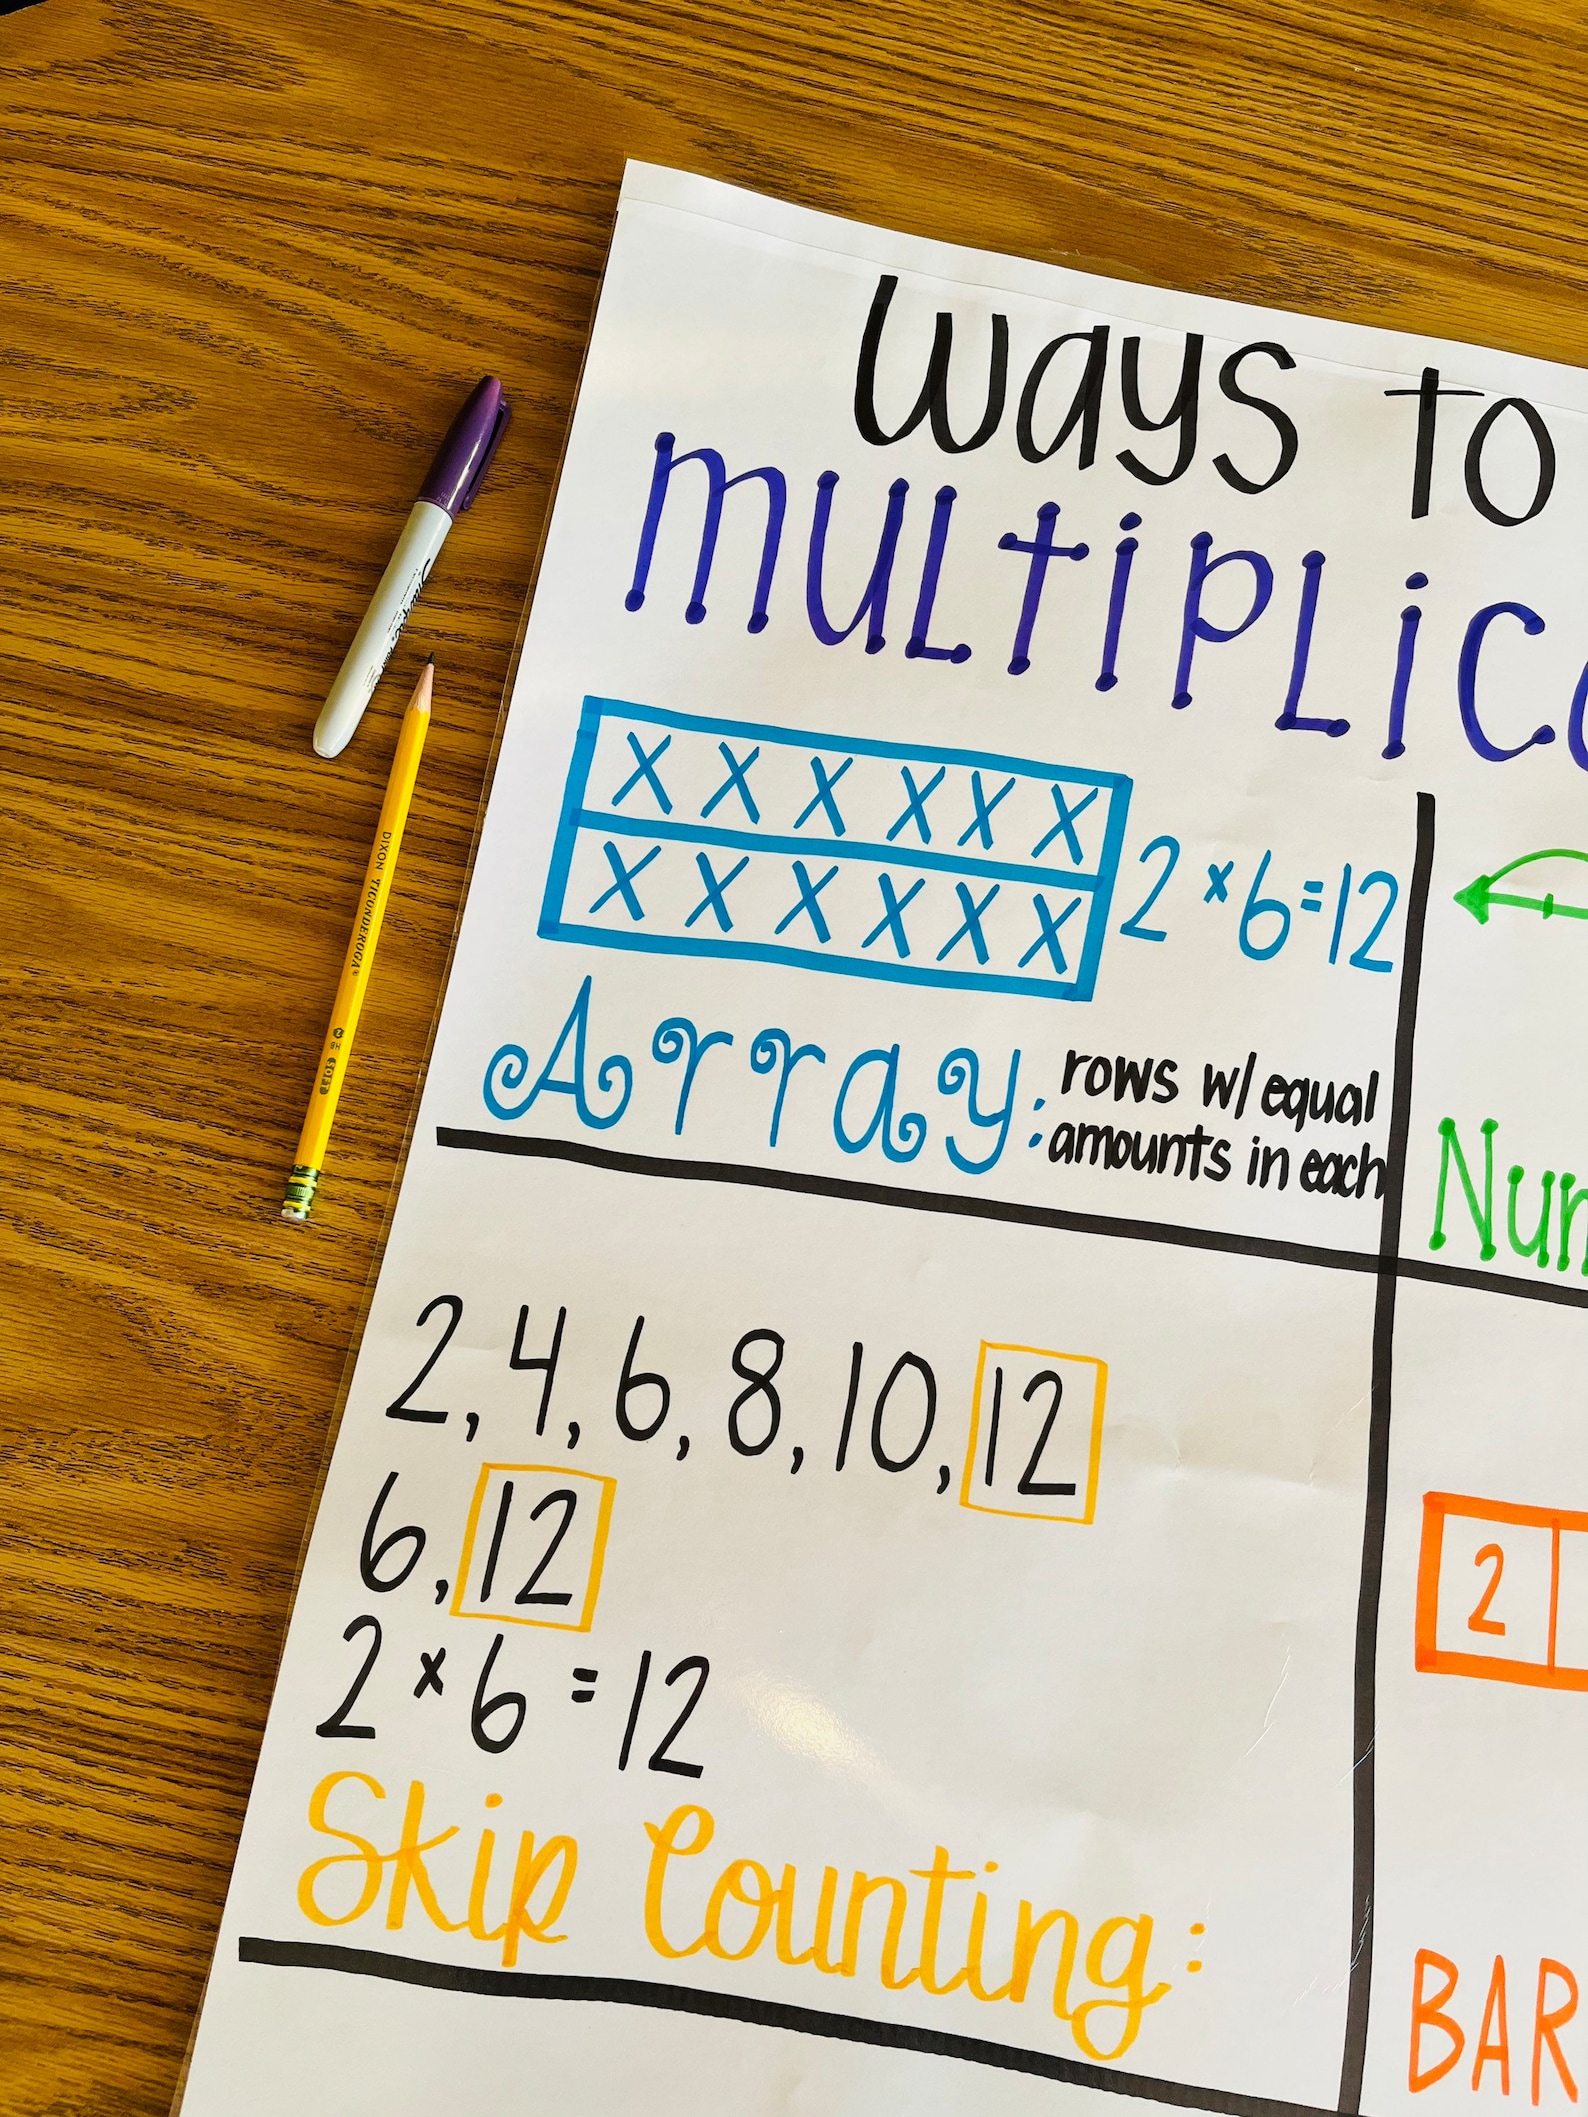 ways to
multiplic
X X X X X X
X X X X X X
2 × 6 = 12
Array: rows w/ equal
amounts in each
Num
2, 4, 6, 8, 10, 12
6, 12
2 × 6 = 12
Skip Counting:
2
BAR
Sharpie
DIXON TICONDEROGA®
HB